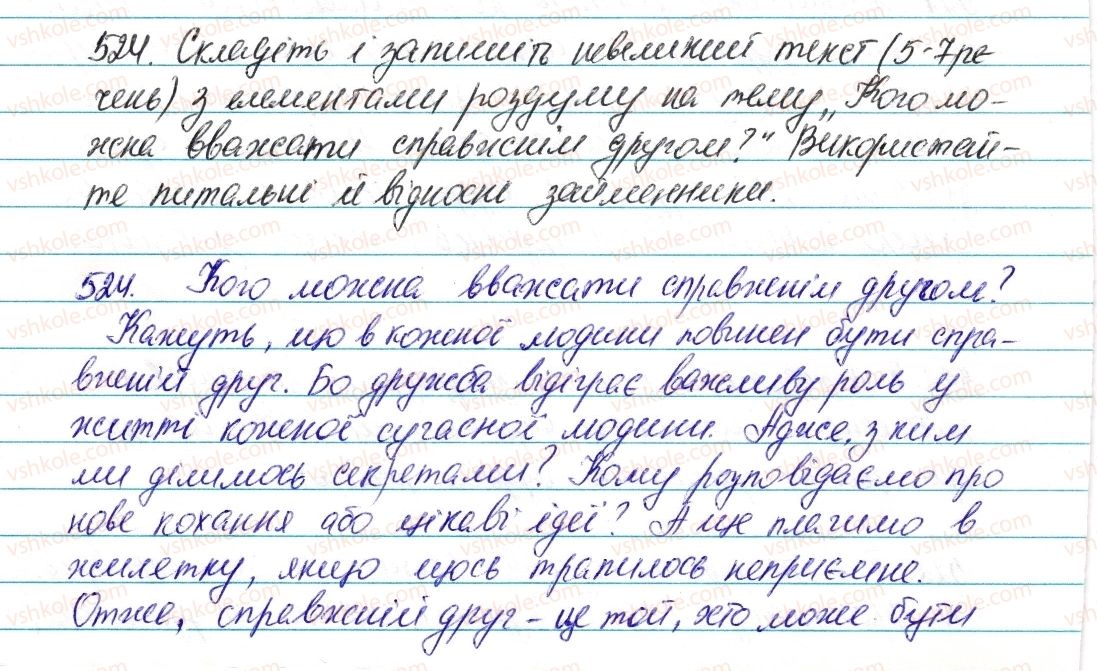 524. Складіть і запишіть невеликий текст (5-7 ре
чень) з елементами роздуму на тему „Кого мо-
жна вважати справжнім другом?" Використай-
те питальні й відносні займенники.
524. Кого можна вважати справжнім другом?
Кажуть, що в кожної людини повинен бути спра-
вжній друг. Бо дружба відіграє важливу роль у
житті кожної сучасної людини. Адже, з ким
ми ділимось секретами? Кому розповідаємо про
нове кохання або цікаві ідеї? А ще плачимо в
жилетку, якщо щось трапилось неприємне.
Отже, справжній друг - це той, хто може бути